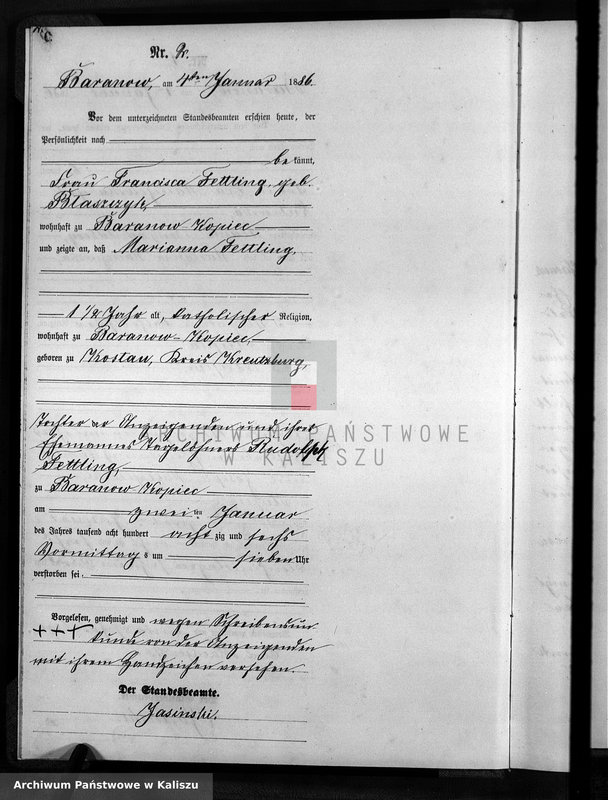 C.
Nr. 2.
Baranow, am 4ten Januar 1886.
Vor dem unterzeichneten Standesbeamten erschien heute, der
Persönlichkeit nach
bekannt,
Frau Francisca Fettling, geb.
Blaszczyk,
wohnhaft zu Baranow Kopiec
und zeigte an, daß Marianna Fettling,
1 1/2 Jahr alt, katholischer Religion,
wohnhaft zu Baranow-Kopiec,
geboren zu Kostau, Kreis Kreutzburg,
Tochter der Anzeigenden und ihres
Ehemannes Tagelöhners Rudolph
Fettling,
zu Baranow Kopiec
am zweiten Januar
des Jahres tausend acht hundert achtzig und sechs
Vormittags um sieben Uhr
verstorben sei.
Vorgelesen, genehmigt und wegen Schreibensun
+++ kunde von der Anzeigenden
mit ihrem Handzeichen versehen.
Der Standesbeamte.
Jasinski.
ARCHIWUM PAŃSTWOWE
W KALISZU
Archiwum Państwowe w Kaliszu